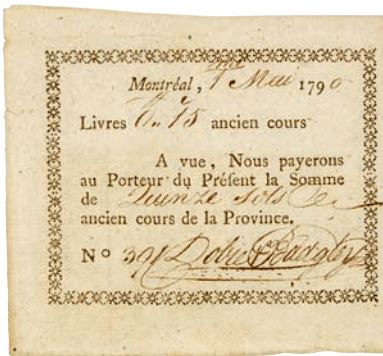 Montréal, 1 Mai 1790
Livres 0.. 15 ancien cours
A vue, Nous payerons
au Porteur du Présent la Somme
de Quinze Sols
ancien cours de la Province.
No 391 Dobie & Badgley